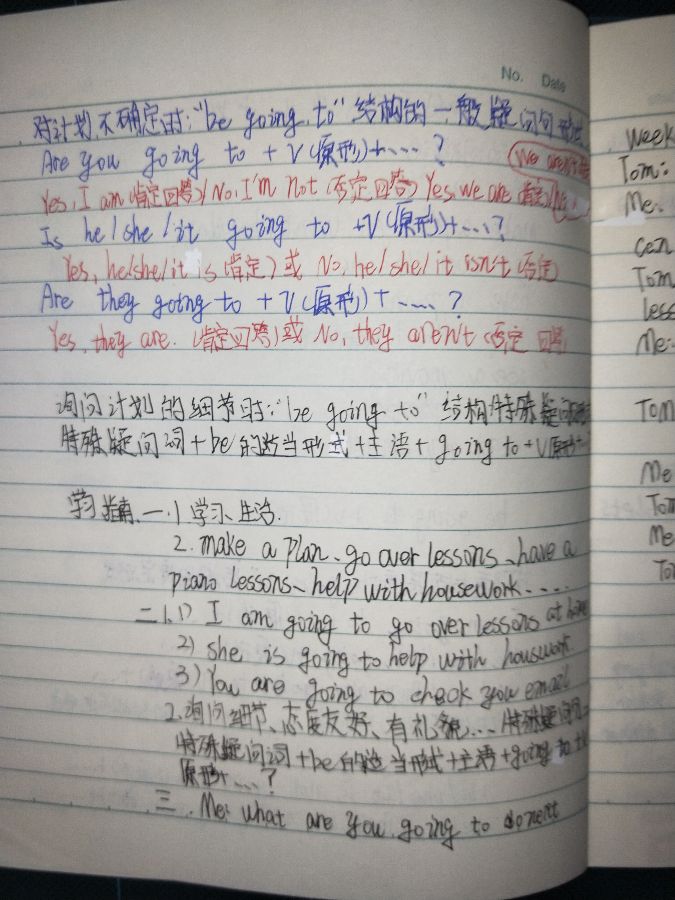 No. Date
对计划不确定时:"be going to"结构的一般疑问句形式
Are you going to + V(原形)+……?
We aren't
Yes, I am(肯定回答)/No, I'm not(否定回答) Yes, we are(肯定)/No,
Is he/she/it going to +V(原形)+…?
Yes, he/she/it is(肯定)或 No, he/she/it isn't(否定
Are they going to + V(原形)+……?
Yes, they are.(肯定回答)或 No, they aren't(否定 回答
询问计划的细节时:"be going to"结构特殊疑问
特殊疑问词+be的适当形式+主语+going to+V原形+
学习指南一.1学习、生活.
2. make a plan、go over lessons、have a
piano lessons、help with housework……
二1.1) I am going to go over lessons at home
2) she is going to help with houswork.
3) You are going to check you email
2.询问细节、态度友好、有礼貌…特殊疑问句:
特殊疑问词+be的适当形式+主语+going to +
原形+…?
三.Me: what are you going to do next
week
Tom:
Me:
can
Tom
less
Me:
Tom
Me
Tom
Me
To